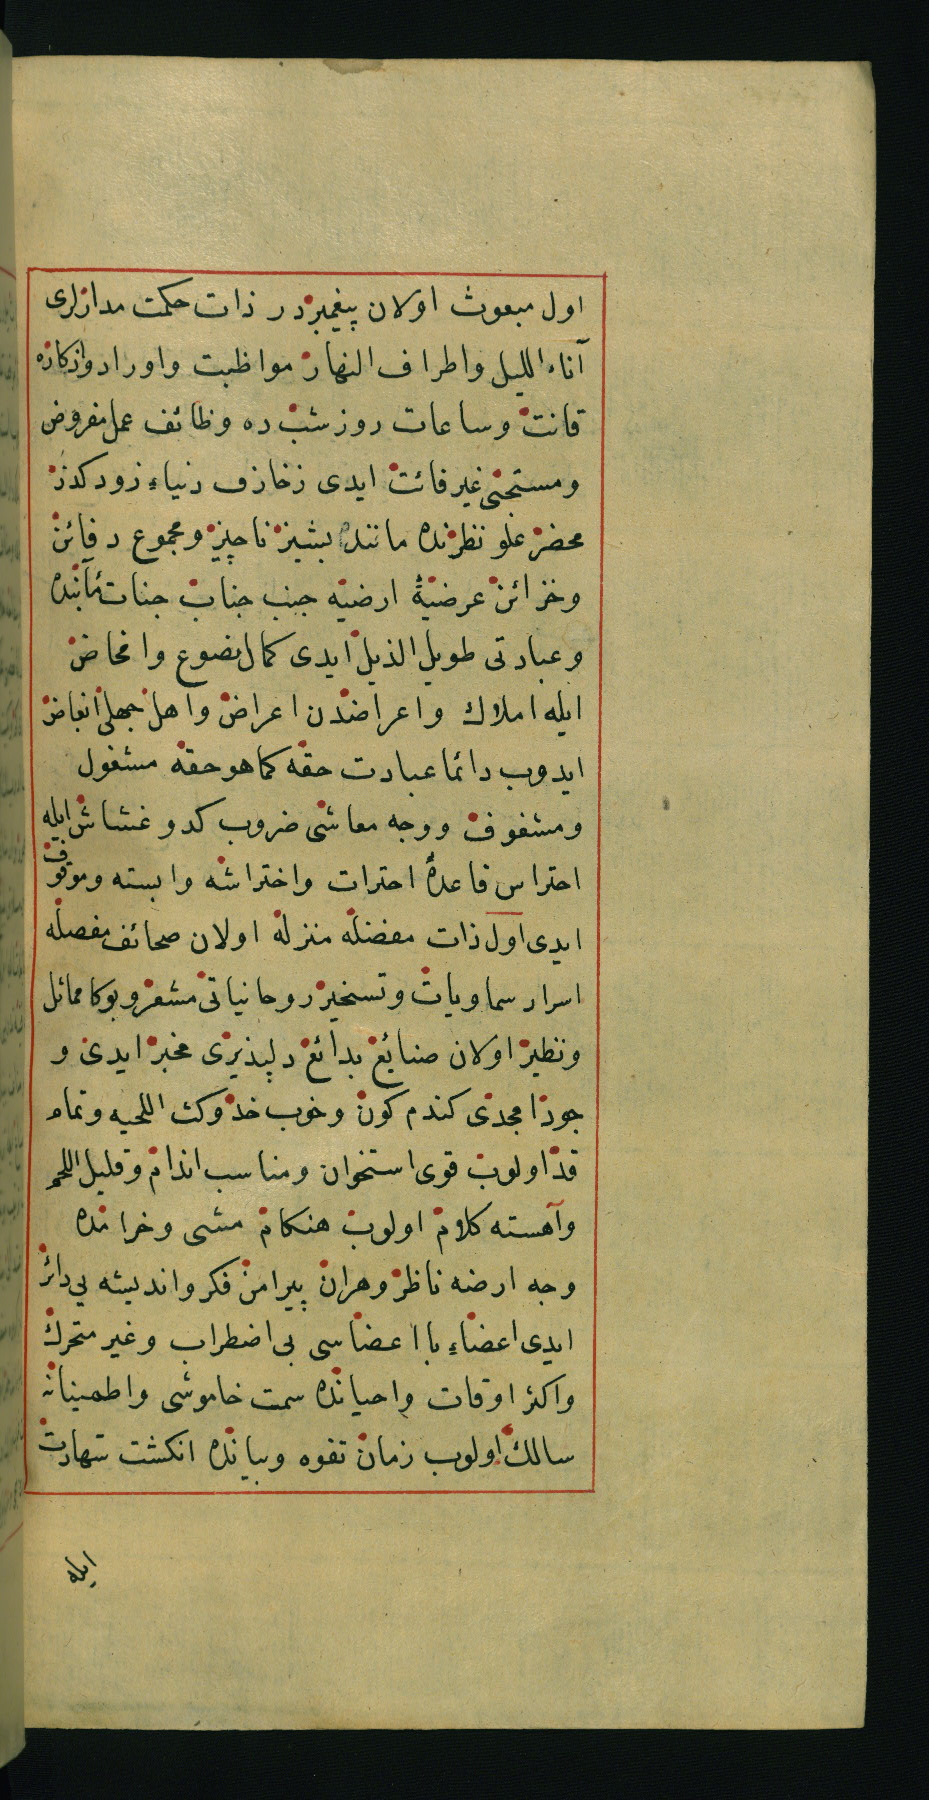 اول مبعوث اولان پیغمبردر ذات حكمت مدارلری
آناء اللیل واطراف النهار مواظبت واوراد واذكاره
قانت وساعات روز شب ده وظائف عمل مفروض
ومستحبی غیر فائت ایدی زخارف دنیاء زود كذر
محضر علو نظرنده ماننده بشیز ناچیز ومجموع دفاین
وخزائن عرضیۀ ارضیه جنب جناب جنات
وعبادتی طویل الذیل ایدی كمال
ایله املاك واعراضدن اعراض واهل جهلی
ایدوب دائما عبادت حقه كما هو حقه مشغول
ومشغوف ووجه معاشی ضروب كدو ایله
احتراس قاعدۀ احتراث واختراشه وابسته وموقوف
ایدی اول ذات مفضله منزلة اولان صحائف مفصله
اسرار سماویات وتسخیر روحانیاتی مشعر وبوكا مماثل
ونظیر اولان صنایع بدائع دلپذیری مخبر ایدی و
جود امجدی كندم كون وخوب خد وكث اللحیه وتمام
قد اولوب قوی استخوان ومناسب اندام وقلیل اللحم
وآهسته كلام اولوب هنكام مشی وخرامنده
وجه ارضه ناظر وهر آن پیرامن فكر واندیشه یی دائر
ایدی اعضاء با اعضاسی بی اضطراب وغیر متحرك
واكثر اوقات واحیانده سمت خاموشی واطمینانه
سالك اولوب زمان تفوه وبیانده انكشت شهادت
ایله